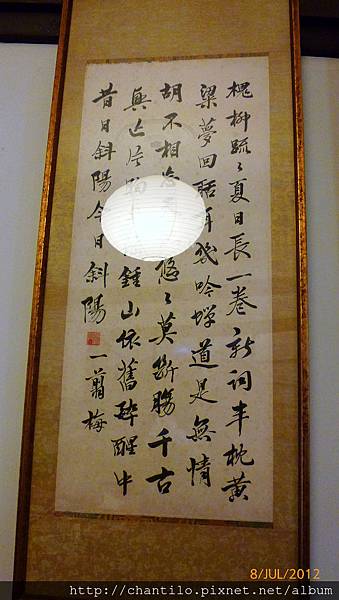 槐柳疏〻夏日長一卷新詞半枕黃
粱夢回話幾吟蟬道是無情
胡不相忘悠〻莫斷腸千古
興亡片鍾山依舊醉醒中
昔日斜陽今日斜陽 一翦梅
8/JUL/2012
http://chantilo.pixnet.net/album